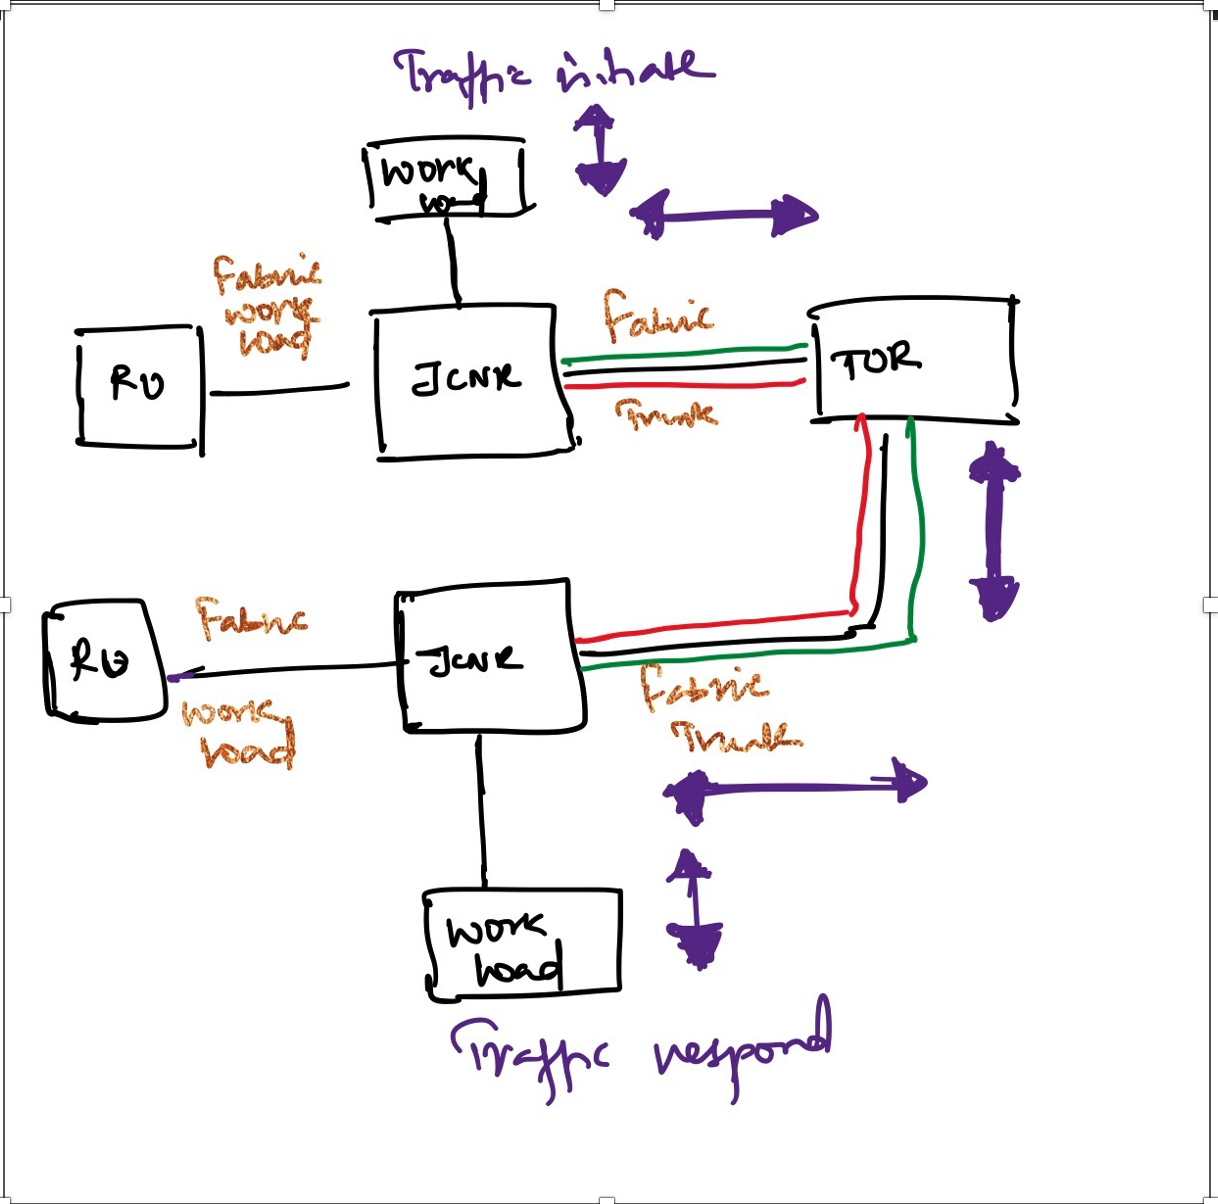 Traffic initiate
Work
load
Fabric
work
load
RU
JCNR
Fabric
Trunk
TOR
RU
Fabric
work
load
JCNR
Fabric
Trunk
Work
load
Traffic respond